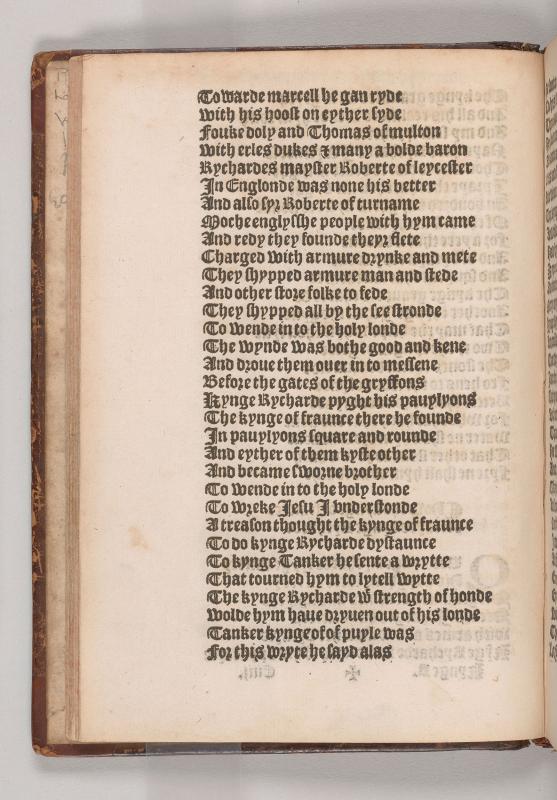 Towarde marcell he gan ryde
With his hoost on eyther syde
Fouke doly and Thomas of multon
With erles dukes ⁊ many a bolde baron
Rychardes mayster Roberte of leycester
In Englonde was none his better
And also syr Roberte of turname
Moche englysshe people with hym came
And redy they founde theyr flete
Charged with armure drynke and mete
They shypped armure man and stede
And other store folke to fede
They shypped all by the see stronde
To wende in to the holy londe
The wynde was bothe good and kene
And droue them ouer in to messene
Before the gates of the gryffons
Kynge Rycharde pyght his pauylyons
The kynge of fraunce there he founde
In pauylyons square and rounde
And eyther of them kyste other
And became sworne brother
To wende in to the holy londe
To wreke Jesu I vnderstonde
A treason thought the kynge of fraunce
To do kynge Rycharde dystaunce
To kynge Tanker he sente a wrytte
That tourned hym to lytell wytte
The kynge Rycharde w̄ strength of honde
Wolde hym haue dryuen out of his londe
Tanker kynge of of puyle was
For this wryte he sayd alas